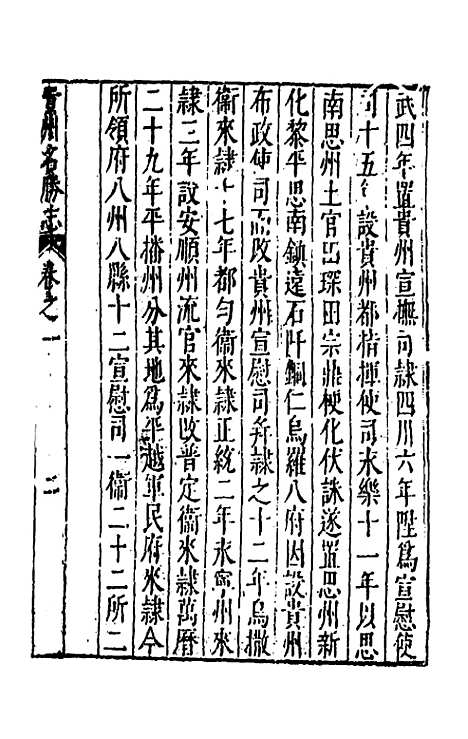 武四年置貴州宣撫司隷四川六年陞爲宣慰使
司十五年設貴州都指揮使司永樂十一年以思
南思州土官田琛田宗鼎梗化伏誅遂置思州新
化黎平思南鎮遠石阡銅仁烏羅八府因設貴州
布政使司而改貴州宣慰司并隷之十二年烏撒
衛來隷十七年都勻衛來隷正統二年永寧州來
隷三年設安順州流官來隷改普定衛來隷萬曆
二十九年平播州分其地爲平越軍民府來隷今
所領府八州八縣十二宣慰司一衛二十二所二
貴州名勝志 卷之一 二